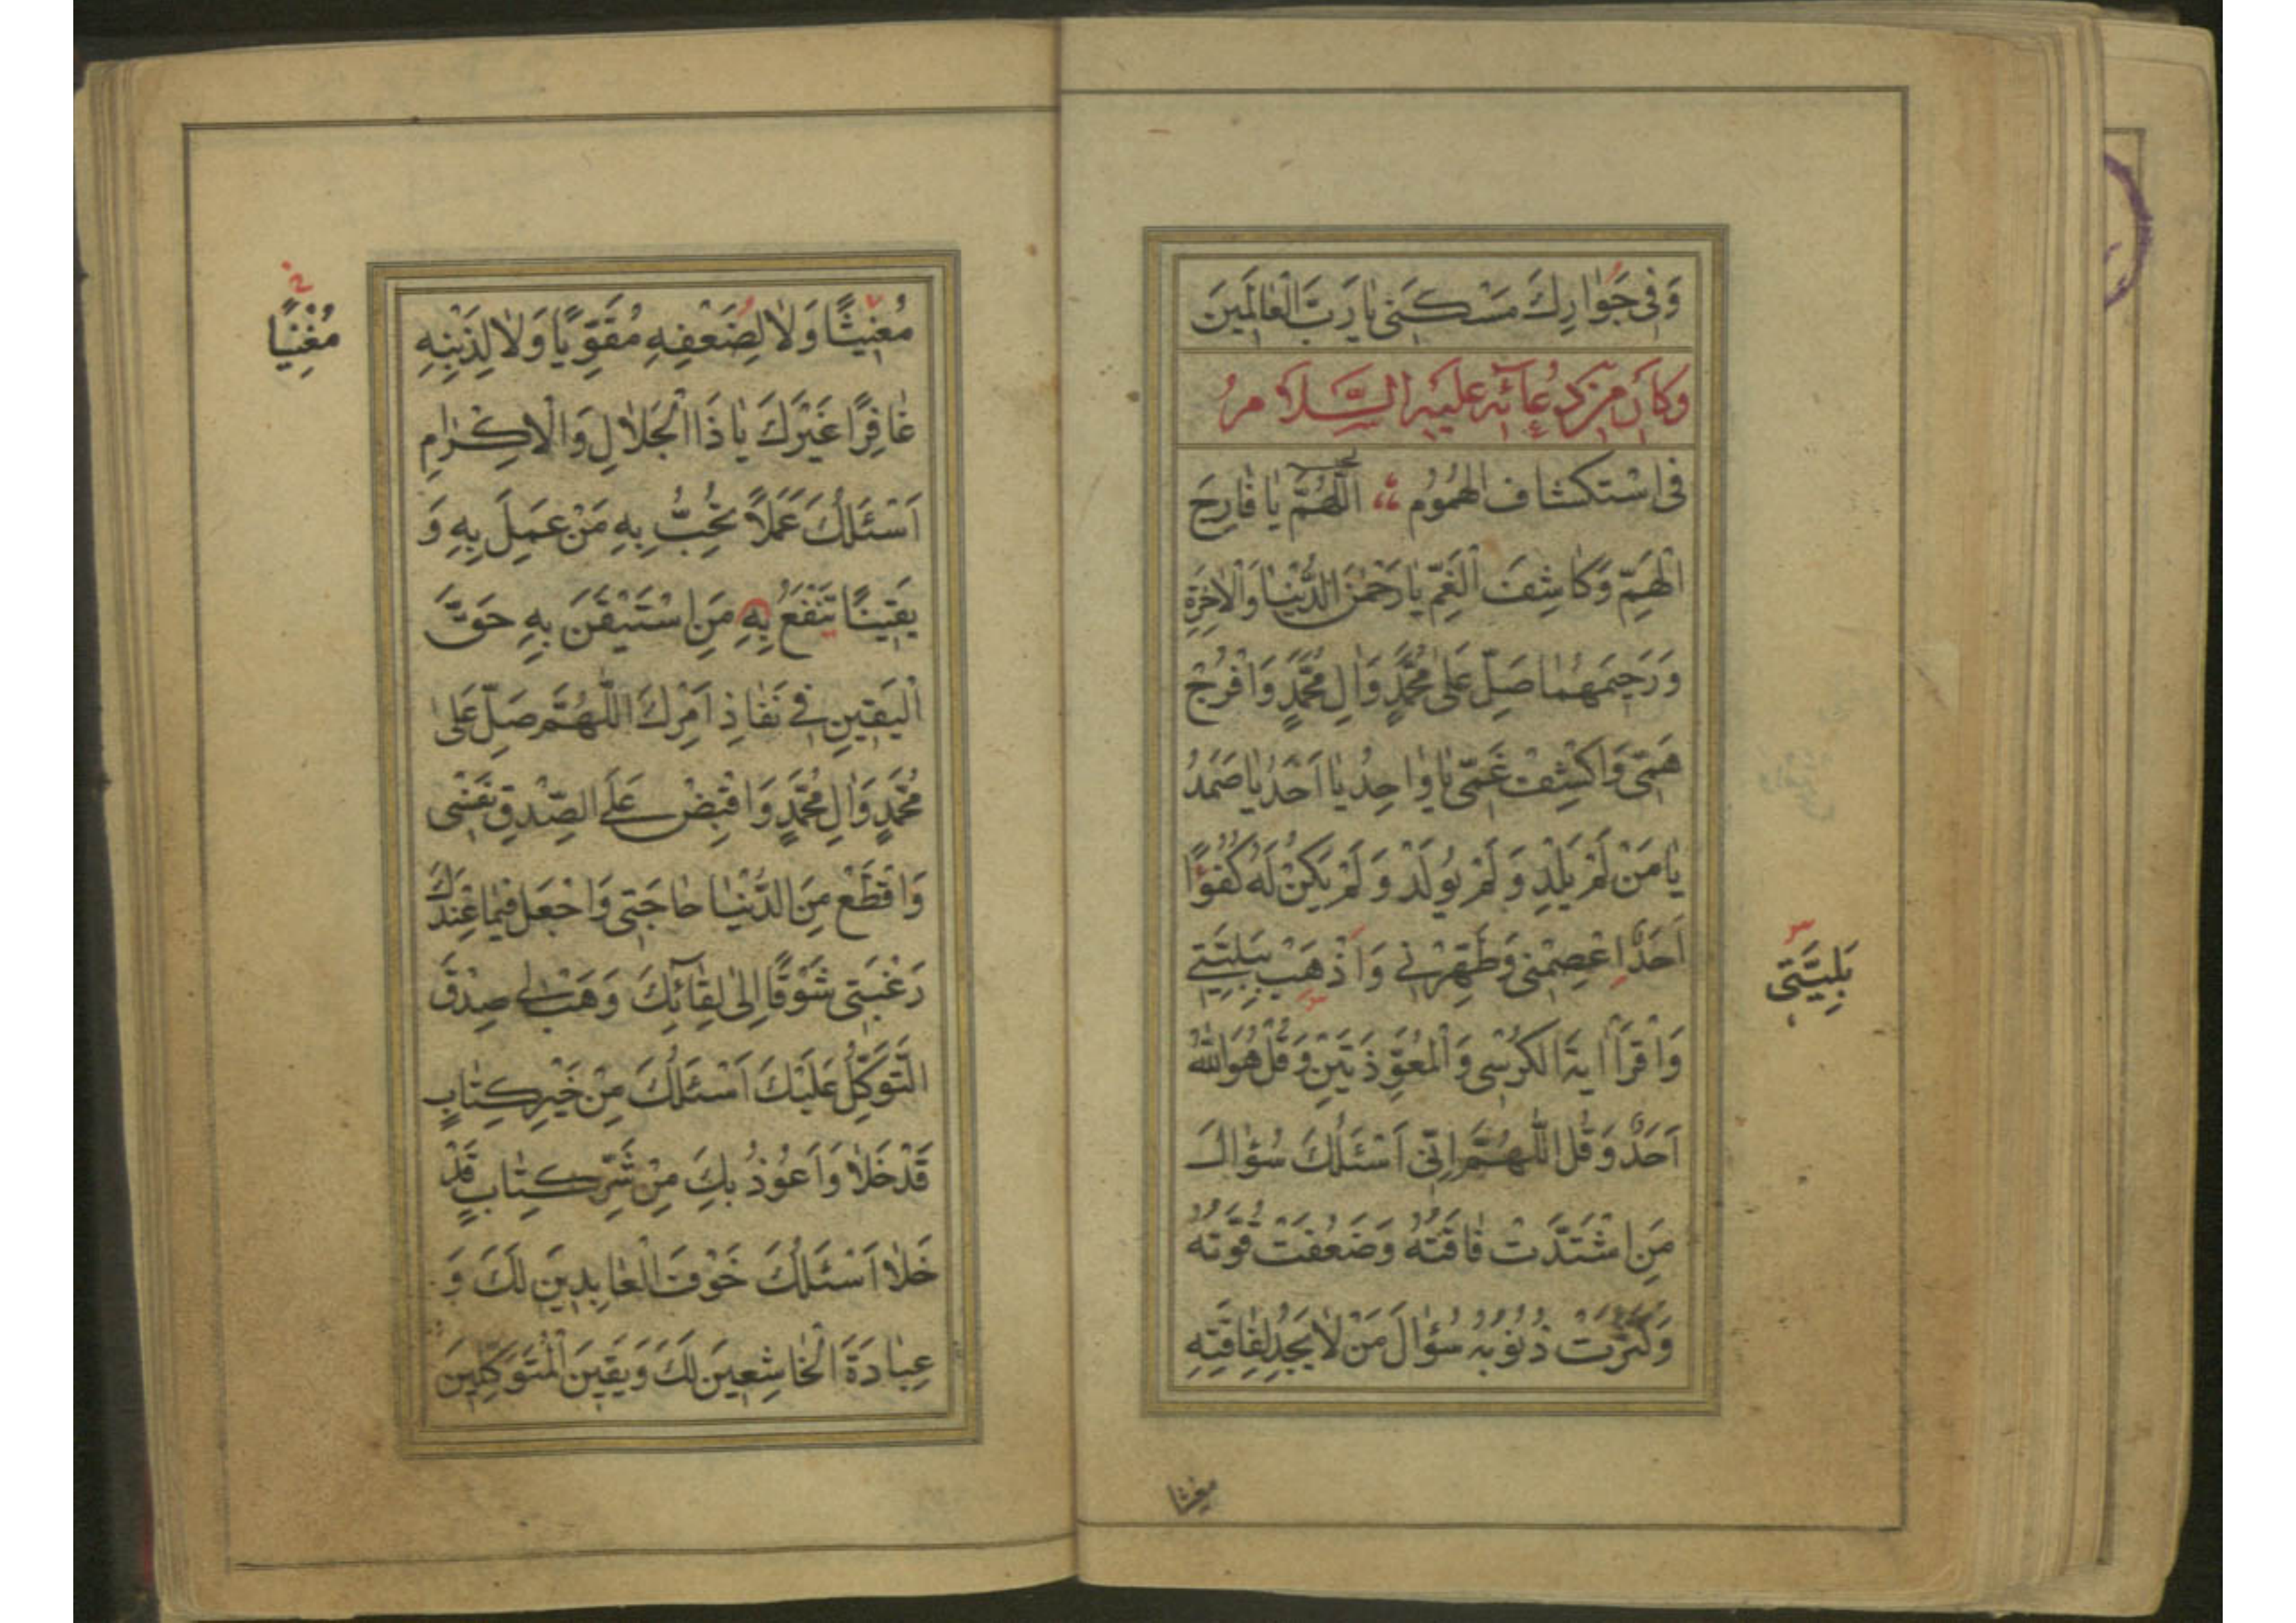 وَفِی جَوٰارِكَ مَسْكَنَی یٰا رَبَّ الْعٰالَمِینَ
وَكٰانَ مِنْ دُعٰآئِهِ عَلَیْهِ السَّلاٰمُ
فِی اسْتِكْشٰافِ الْهُمُومِ اَللّٰهُمَّ یٰا فٰارِجَ
الْهَمِّ وَكٰاشِفَ الْغَمِّ یٰا رَحْمٰنَ الدُّنْیٰا وَالْاٰخِرَةِ
وَرَحِیمَهُمٰا صَلِّ عَلیٰ مُحَمَّدٍ وَاٰلِ مُحَمَّدٍ وَافْرُجْ
هَمّی وَاكْشِفْ غَمّی یٰا وٰاحِدُ یٰا اَحَدُ یٰا صَمَدُ
یٰا مَنْ لَمْ یَلِدْ وَلَمْ یُولَدْ وَلَمْ یَكُنْ لَهُ كُفُوًا
اَحَدٌ اِعْصِمْنی وَطَهِّرْنی وَاَذْهِبْ بِبَلِیَّتی
بَلِیَّتی
وَاقْرَأْ اٰیَةَ الْكُرْسی وَالْمُعَوِّذَتَیْنِ وَقُلْ هُوَ اللّٰهُ
اَحَدٌ وَقُلْ اَللّٰهُمَّ اِنّی اَسْئَلُكَ سُؤٰالَ
مَنِ اشْتَدَّتْ فٰاقَتُهُ وَضَعُفَتْ قُوَّتُهُ
وَكَثُرَتْ ذُنُوبُهُ سُؤٰالَ مَنْ لاٰ یَجِدُ لِفٰاقَتِهِ
مغیثا
مُغیثًا وَلاٰ لِضَعْفِهِ مُقَوِّیًا وَلاٰ لِذَنْبِهِ
مُغْنِیًا
غٰافِرًا غَیْرَكَ یٰا ذَا الْجَلاٰلِ وَالْاِكْرٰامِ
اَسْئَلُكَ عَمَلاً تُحِبُّ بِهِ مَنْ عَمِلَ بِهِ وَ
یَقینًا تَنْفَعُ بِهِ مَنِ اسْتَیْقَنَ بِهِ حَقَّ
الْیَقینِ فی نَفٰاذِ اَمْرِكَ اَللّٰهُمَّ صَلِّ عَلیٰ
مُحَمَّدٍ وَاٰلِ مُحَمَّدٍ وَاقْبِضْ عَلَی الصِّدْقِ نَفْسی
وَاقْطَعْ مِنَ الدُّنْیٰا حٰاجَتی وَاجْعَلْ فیمٰا عِنْدَكَ
رَغْبَتی شَوْقًا اِلیٰ لِقٰآئِكَ وَهَبْ لی صِدْقَ
التَّوَكُّلِ عَلَیْكَ اَسْئَلُكَ مِنْ خَیْرِ كِتٰابٍ
قَدْ خَلاٰ وَاَعُوذُ بِكَ مِنْ شَرِّ كِتٰابٍ قَدْ
خَلاٰ اَسْئَلُكَ خَوْفَ الْعٰابِدینَ لَكَ وَ
عِبٰادَةَ الْخٰاشِعینَ لَكَ وَیَقینَ الْمُتَوَكِّلینَ